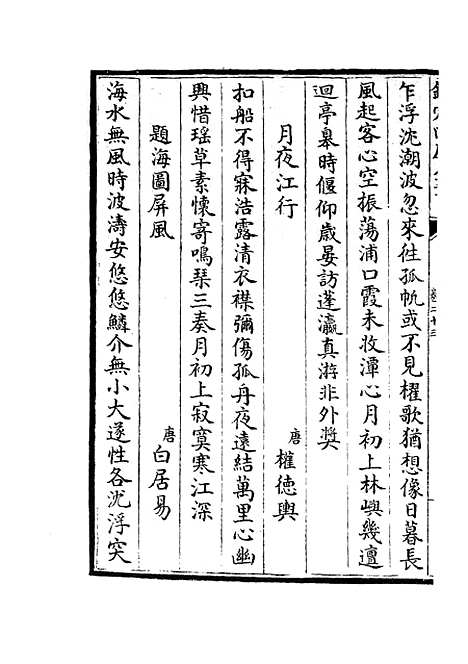 乍浮沈潮波忽來往孤帆或不見櫂歌猶想像日暮長
風起客心空振蕩浦口霞未收潭心月初上林嶼幾邅
迴亭皋時偃仰歲晏訪蓬瀛真游非外奬
月夜江行 唐 權德輿
扣船不得寐浩露清衣襟彌傷孤舟夜遠結萬里心幽
興惜瑤草素懷寄鳴琴三奏月初上寂寞寒江深
題海圖屏風 唐 白居易
海水無風時波濤安悠悠鱗介無小大遂性各沈浮突